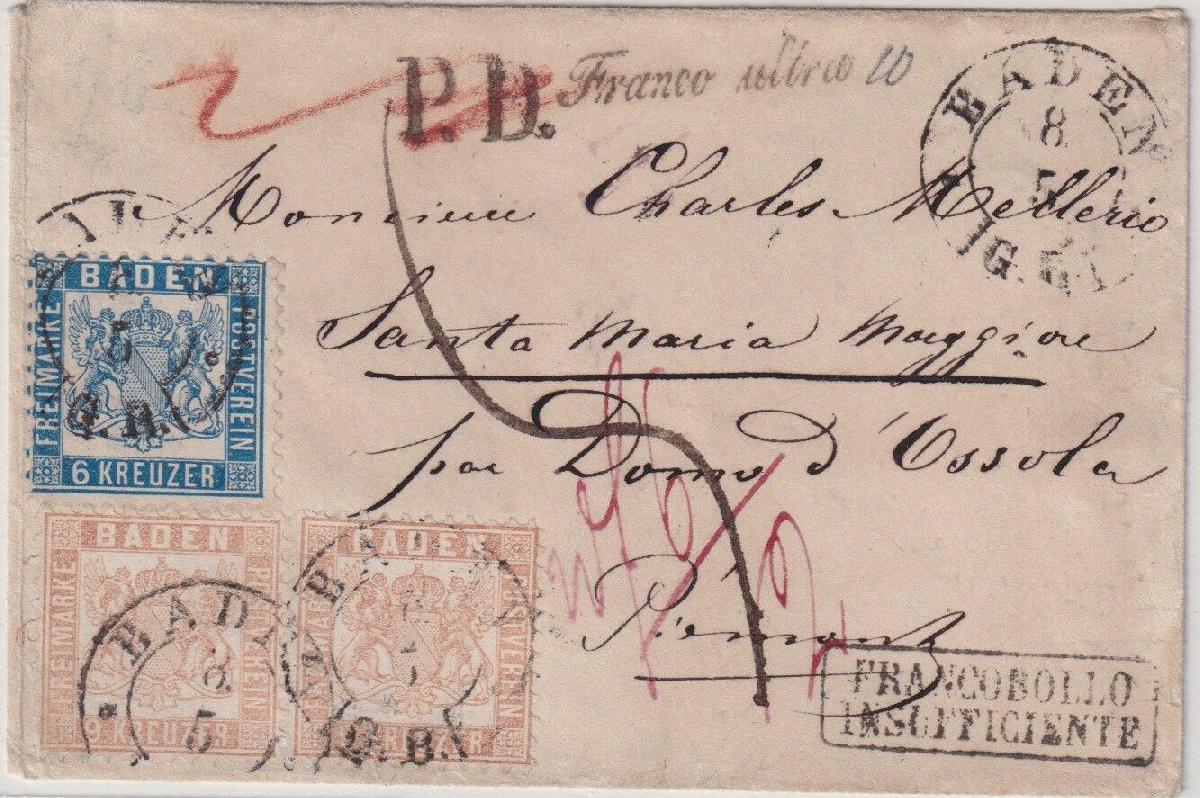 P.D. Franco ultra 10
BADEN
8
5
Monsieur Charles Mellerio
Santa Maria Maggiore
par Domo d'Ossola
Piémont
BADEN
FREIMARKE
POSTVEREIN
6 KREUZER
5
G.B.
BADEN
FREIMARKE
POSTVEREIN
9 KREUZER
BADEN
8
5
BADEN
FREIMARKE
POSTVEREIN
KREUZER
G.B.
FRANCOBOLLO
INSUFFICIENTE